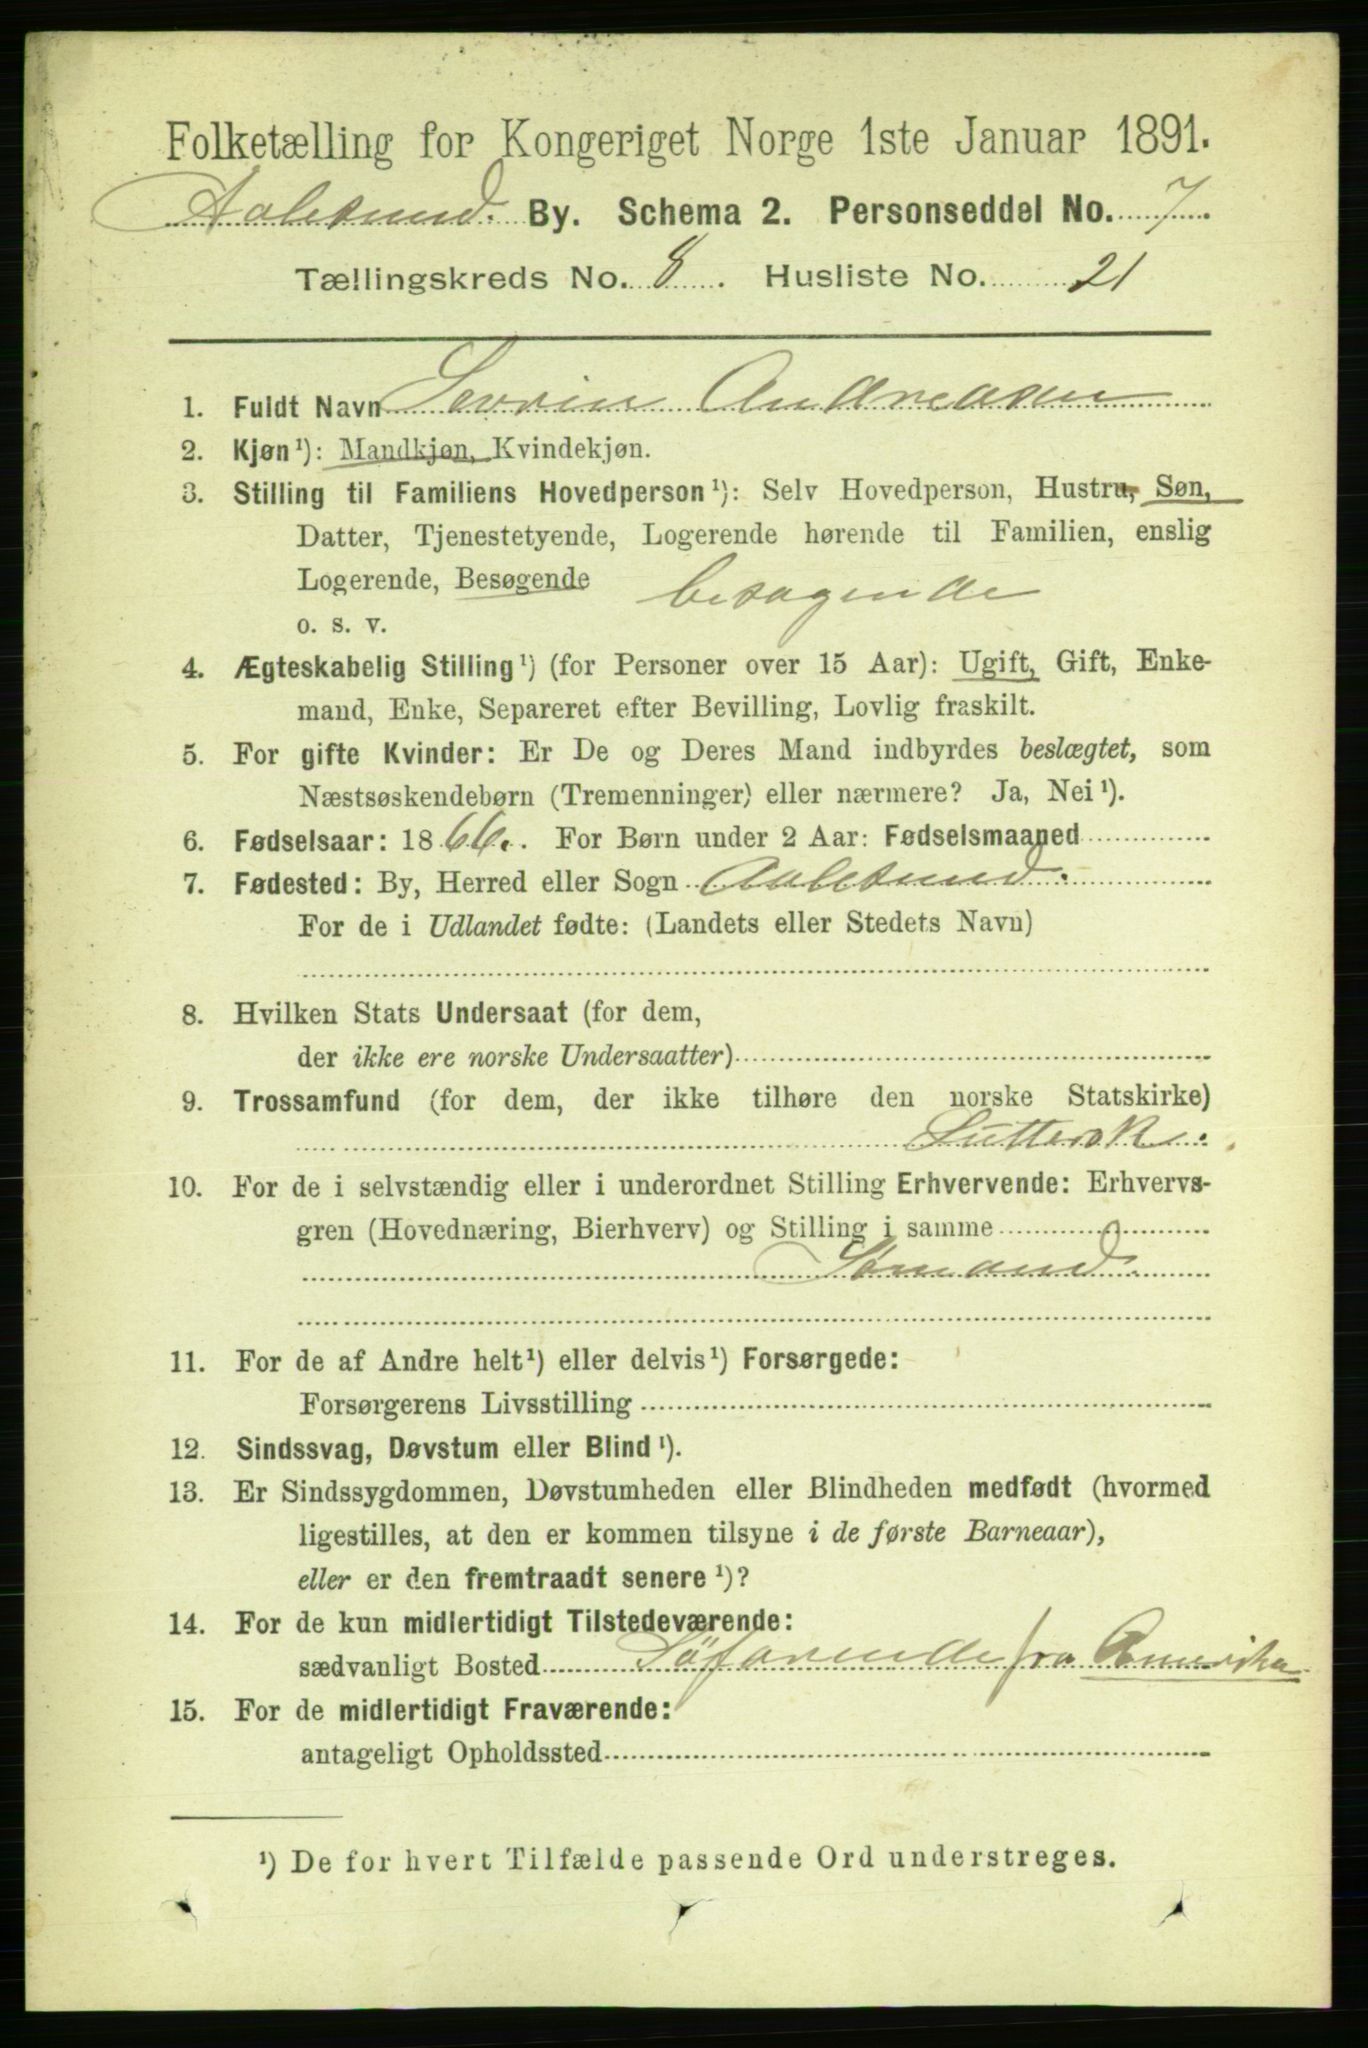 Folketælling for Kongeriget Norge 1ste Januar 1891.
Aalesund. By. Schema 2. Personseddel No. 7
Tællingskreds No. 8. Husliste No. 21
1. Fuldt Navn Sevrin Andreasen
2. Kjøn¹): Mandkjøn, Kvindekjøn.
3. Stilling til Familiens Hovedperson¹): Selv Hovedperson, Hustru, Søn,
Datter, Tjenestetyende, Logerende hørende til Familien, enslig
Logerende, Besøgende besøgende
o. s. v.
4. Ægteskabelig Stilling¹) (for Personer over 15 Aar): Ugift, Gift, Enke-
mand, Enke, Separeret efter Bevilling, Lovlig fraskilt.
5. For gifte Kvinder: Er De og Deres Mand indbyrdes beslægtet, som
Næstsøskendebørn (Tremenninger) eller nærmere? Ja, Nei¹).
6. Fødselsaar: 1866. For Børn under 2 Aar: Fødselsmaaned
7. Fødested: By, Herred eller Sogn Aalesund.
For de i Udlandet fødte: (Landets eller Stedets Navn)
8. Hvilken Stats Undersaat (for dem,
der ikke ere norske Undersaatter)
9. Trossamfund (for dem, der ikke tilhøre den norske Statskirke)
Luttersk.
10. For de i selvstændig eller i underordnet Stilling Erhvervende: Erhvervs-
gren (Hovednæring, Bierhverv) og Stilling i samme
Sømand.
11. For de af Andre helt¹) eller delvis¹) Forsørgede:
Forsørgerens Livsstilling
12. Sindssvag, Døvstum eller Blind¹).
13. Er Sindssygdommen, Døvstumheden eller Blindheden medfødt (hvormed
ligestilles, at den er kommen tilsyne i de første Barneaar),
eller er den fremtraadt senere¹)?
14. For de kun midlertidigt Tilstedeværende:
sædvanligt Bosted Söfarende fra Amerika
15. For de midlertidigt Fraværende:
antageligt Opholdssted
¹) De for hvert Tilfælde passende Ord understreges.